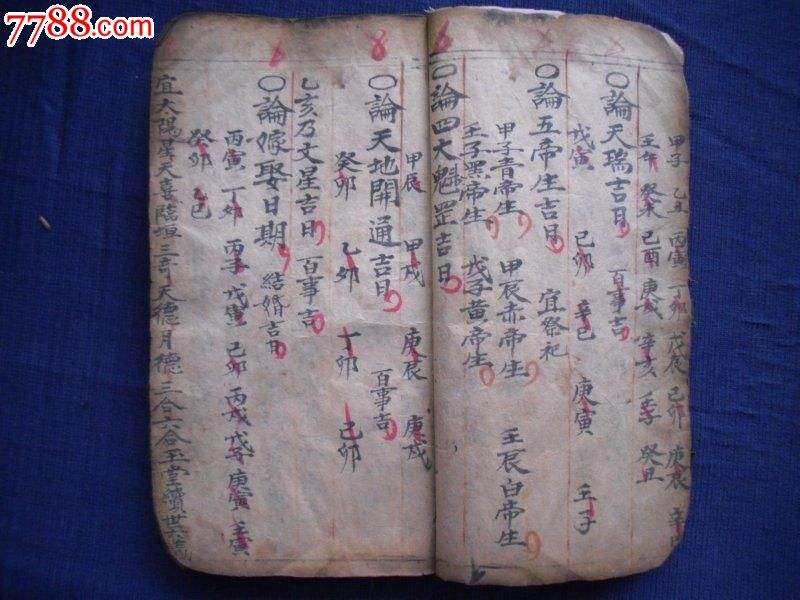 7788.com
甲子 乙丑 丙寅 丁卯 戊辰 己卯 庚辰 辛巳
壬午 癸未 己酉 庚戌 辛亥 壬子 癸丑
〇論天瑞吉日 百事吉
戊寅 己卯 辛巳 庚寅 壬子
〇論五帝生吉日 宜祭祀
甲子青帝生 甲辰赤帝生 壬辰白帝生
壬子黑帝生 戊子黃帝生
〇論四大魁罡吉日
甲辰 甲戌 庚辰 庚戌
〇論天地開通吉日 百事吉
癸卯 乙卯 丁卯 己卯
乙亥乃文星吉日 百事吉
〇論嫁娶日期 結婚吉日
丙寅 丁卯 丙子 戊寅 己卯 丙戌 戊子 庚寅 壬寅
癸卯 乙巳
宜太陽星天喜臨垣三奇天德月德三合六合玉堂續世